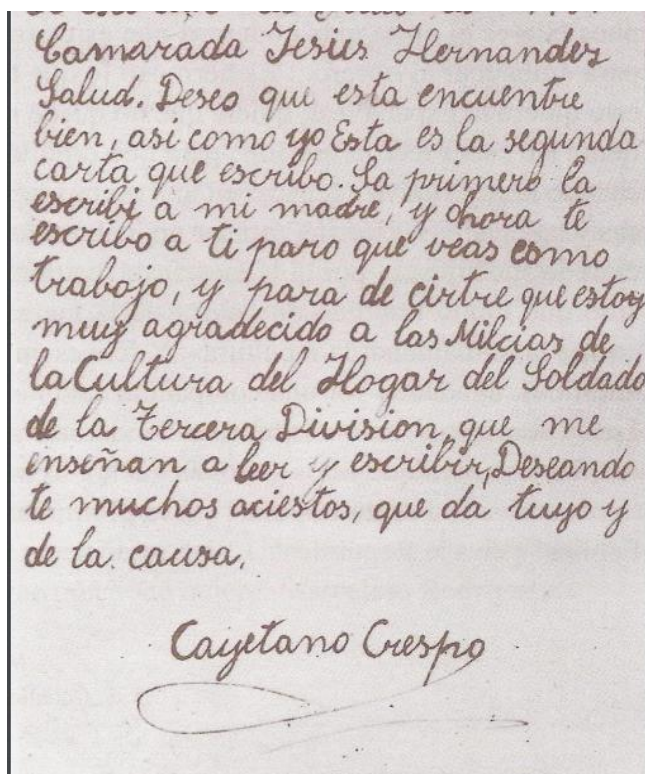 Camarada Jesus Hernandez
Salud. Deseo que esta encuentre
bien, asi como yo Esta es la segunda
carta que escribo. La primero la
escribi a mi madre, y ahora te
escribo a ti paro que veas como
trabajo, y para de cirtre que estoy
muy agradecido a las Milcias de
la Cultura del Hogar del Soldado
de la Tercera Division, que me
enseñan a leer y escribir, Deseando
te muchos aciestos, que da tuyo y
de la causa.
Cayetano Crespo